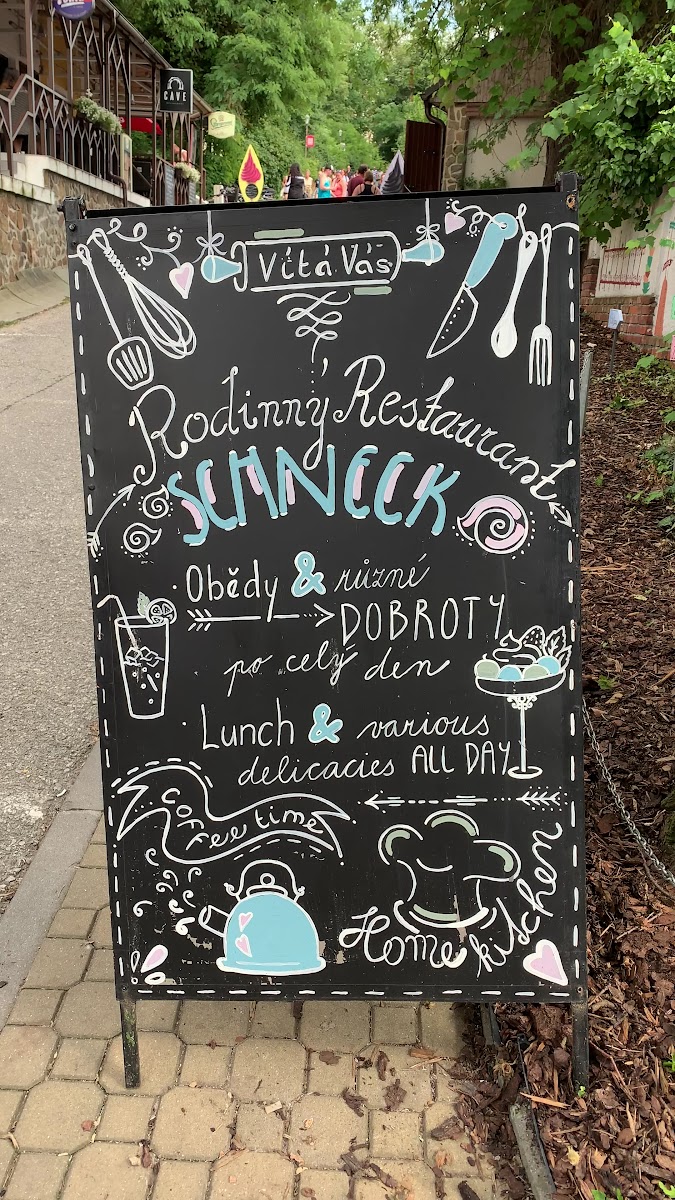 CAVE
Vítá Vás
Rodinný Restaurant
SCHNECK
Obědy & různé
DOBROTY
po celý den
Lunch & various
delicacies ALL DAY
coffee time
Home kitchen